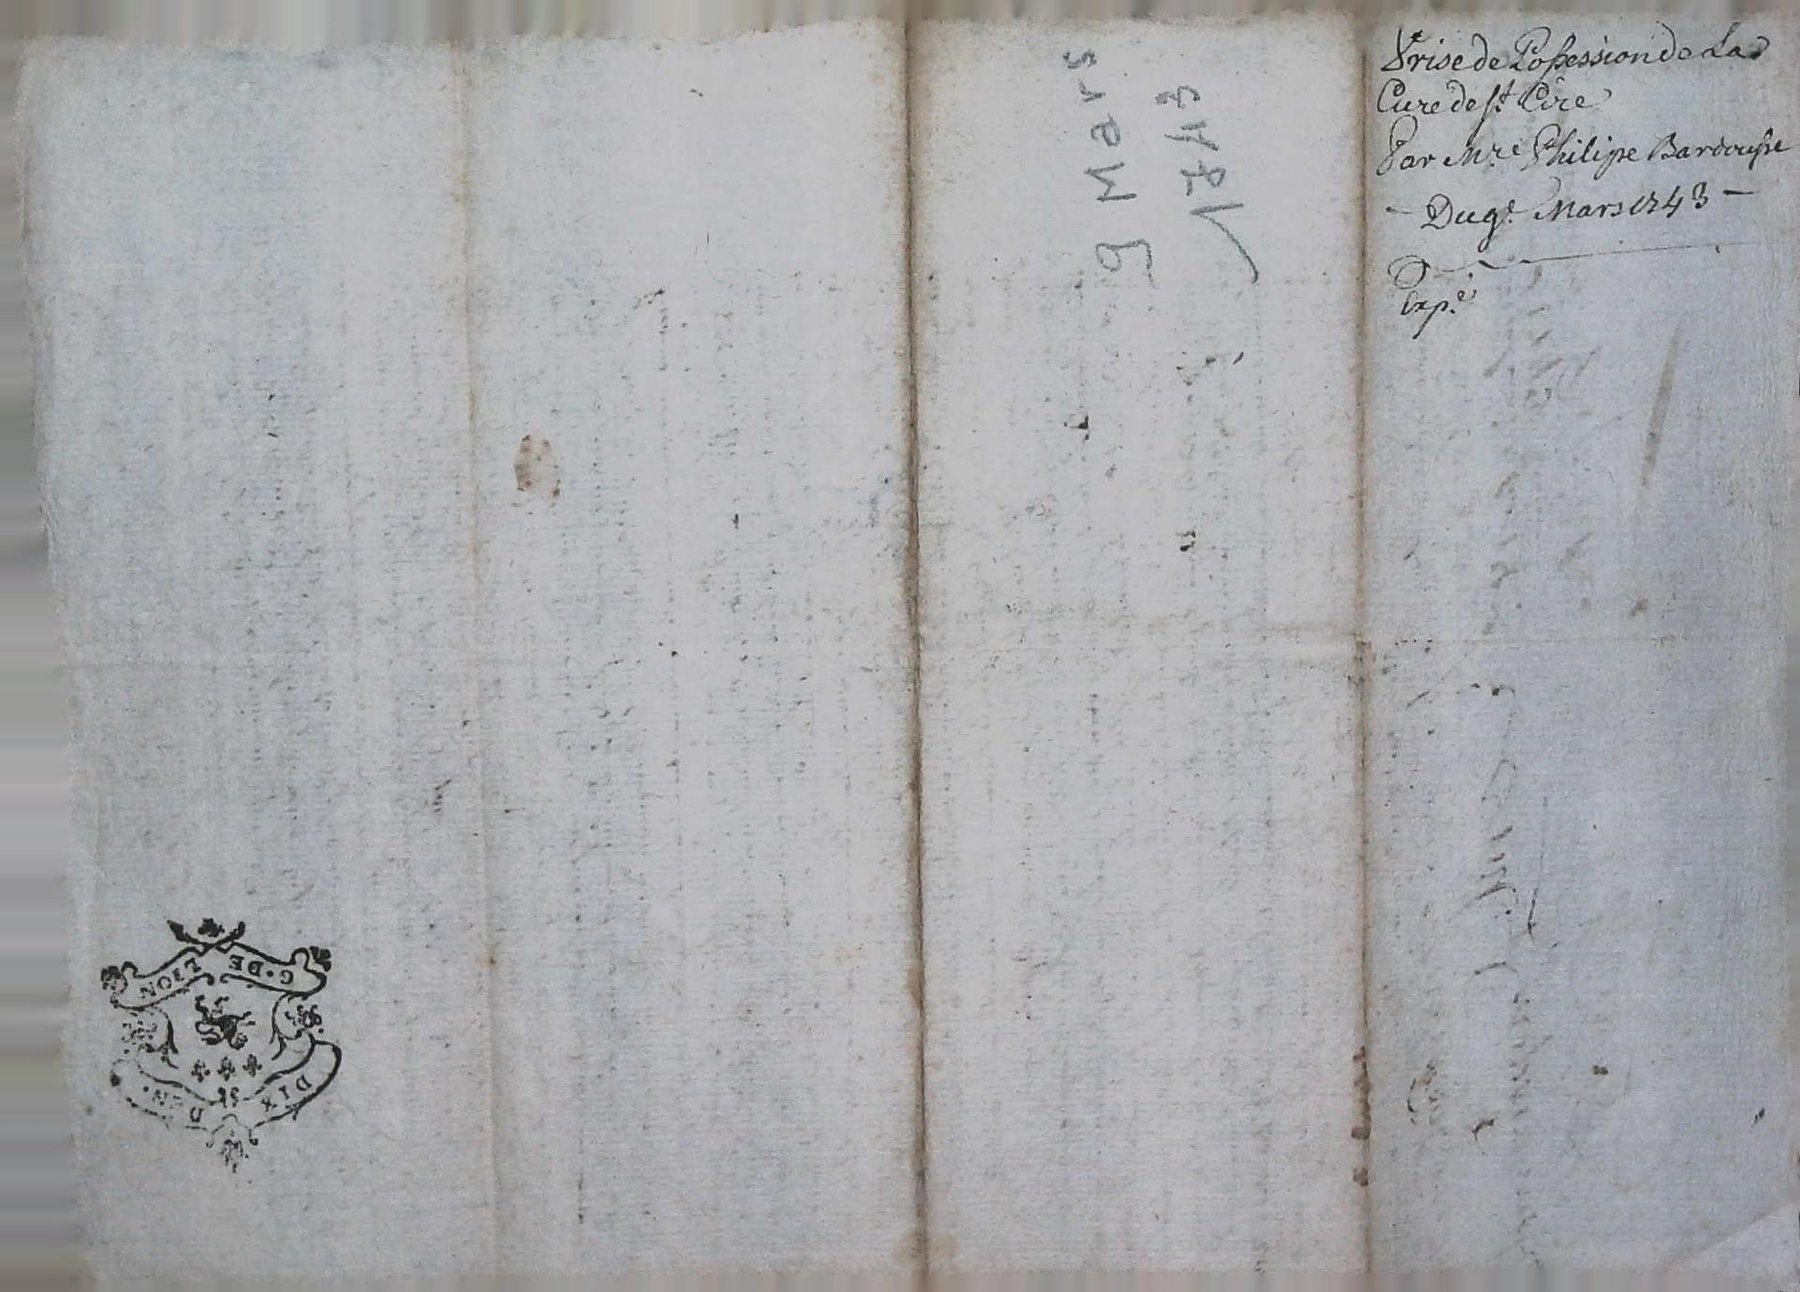 Prise de Possession de La
Cure de St Cire
Par Mre Philipe Bardousse
- Du 9e Mars 1743 -
Expe
9 Mars
1743
G. DE LION
DIX DEN.